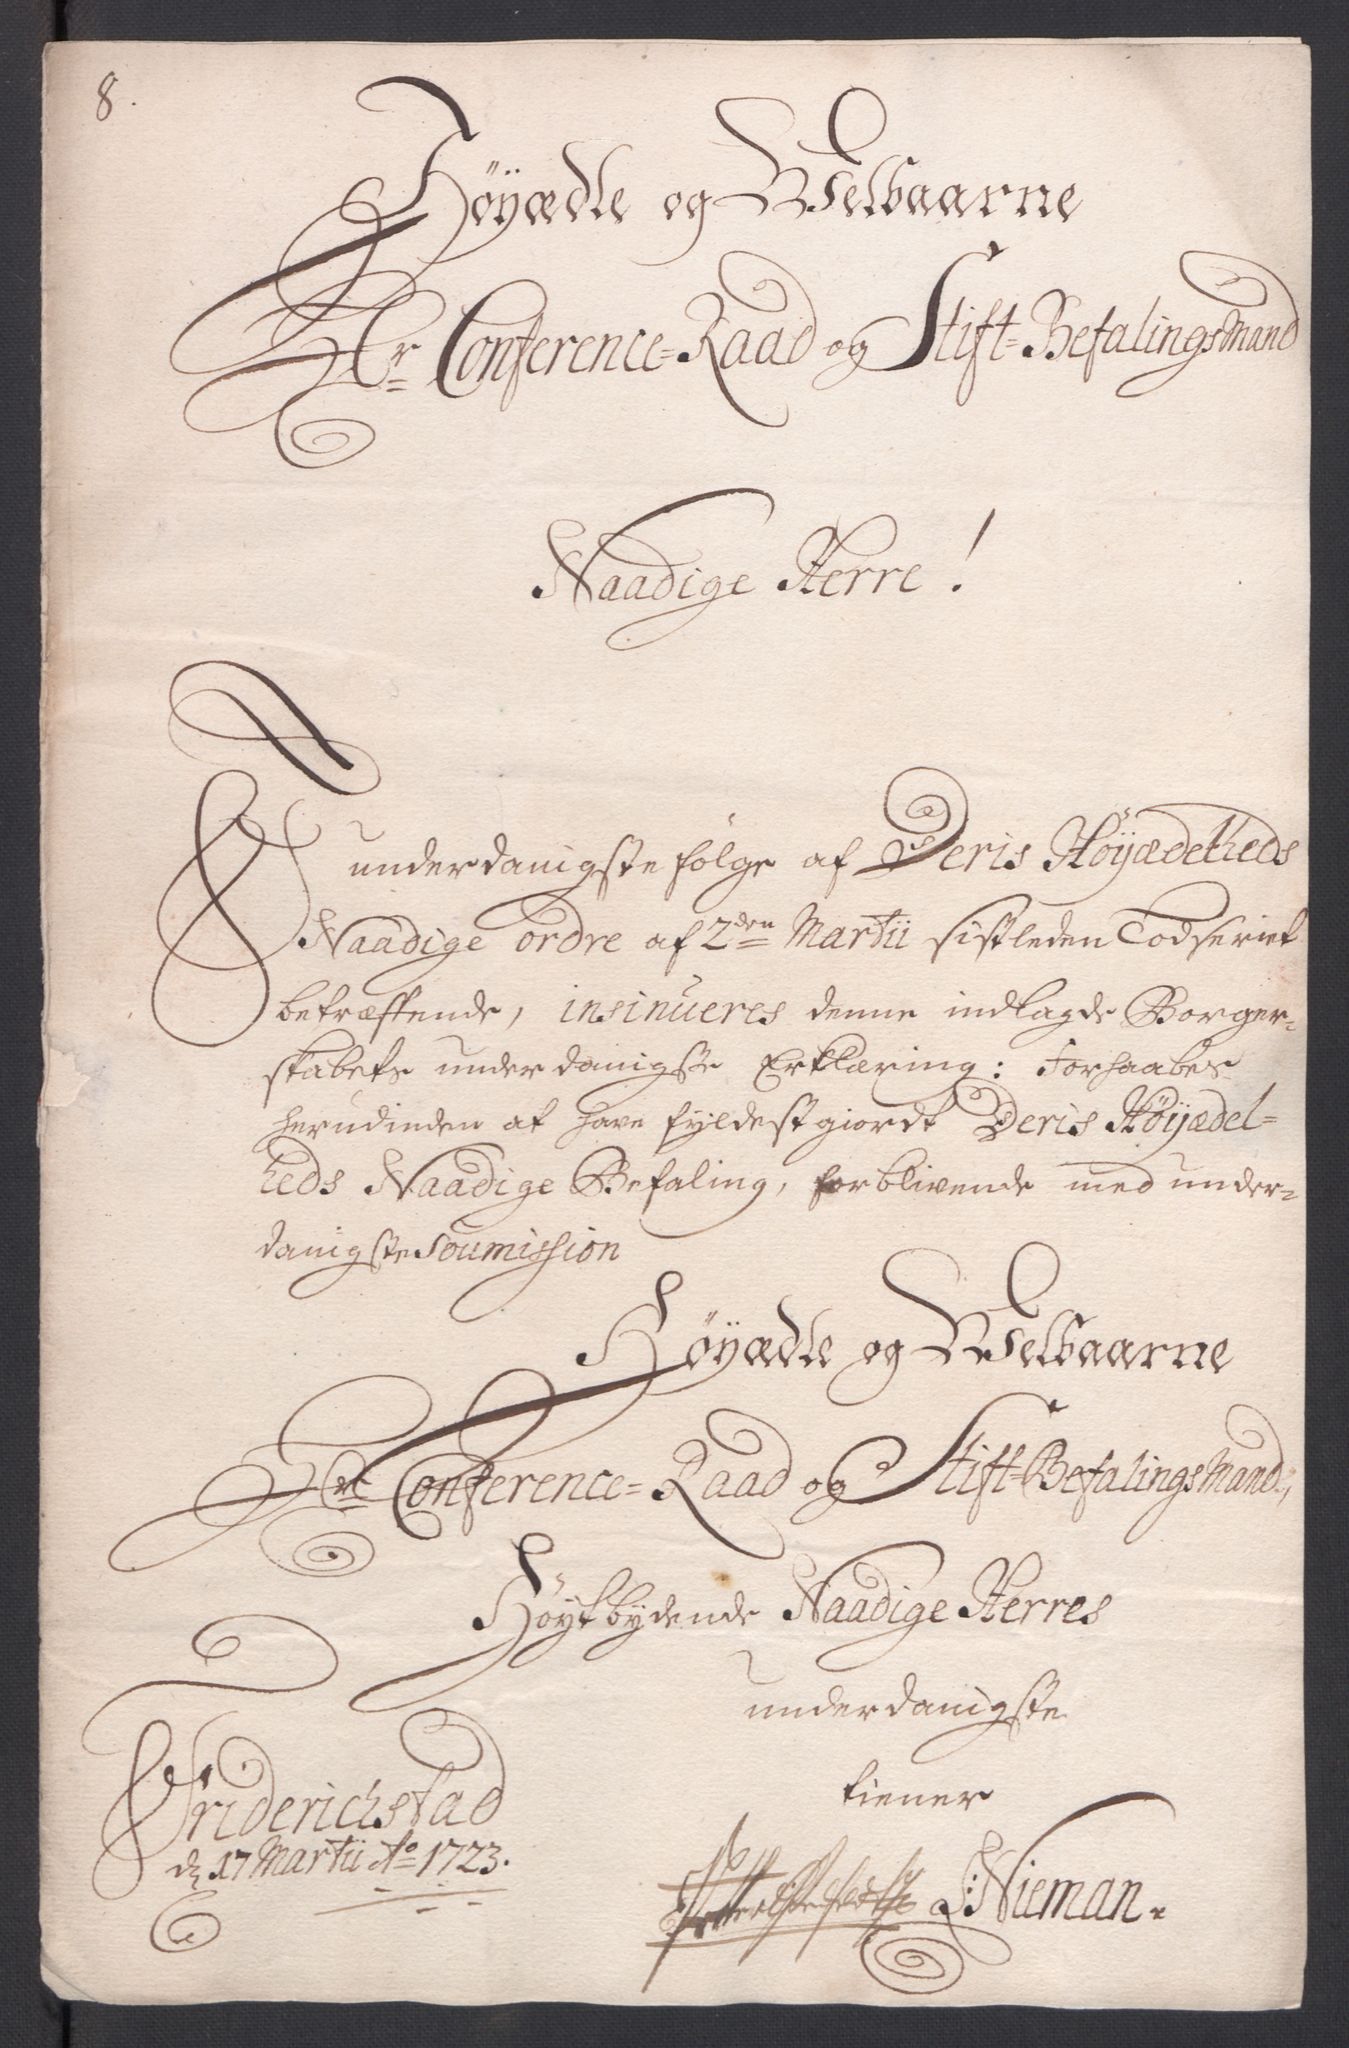 8.
Höyædle og Welbaarne
Hr Conference=Raad og Stift=BefalingsMand
Naadige Herre!
underdanigste følge af Deris Höyædelheds
Naadige ordre af 2den Martii sistleden
betræffende, insinueres denne indlagde Borger=
skabets underdanigste Erklæring: Forhaabes
herudinden at have fyldestgiordt Deris Höyædel=
heds Naadige Befaling, forblivende med under=
danigste Soumission
Höyædle og Welbaarne
Hr Conference=Raad og Stift=BefalingsMand,
Höytbydende Naadige Herres
underdanigste
tiener
Friderichstad
d 17 Martii Ao 1723.
Nieman